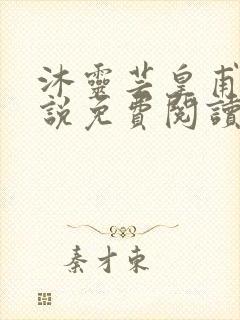 沐靈芸皇甫
說免費閱讀
秦才東